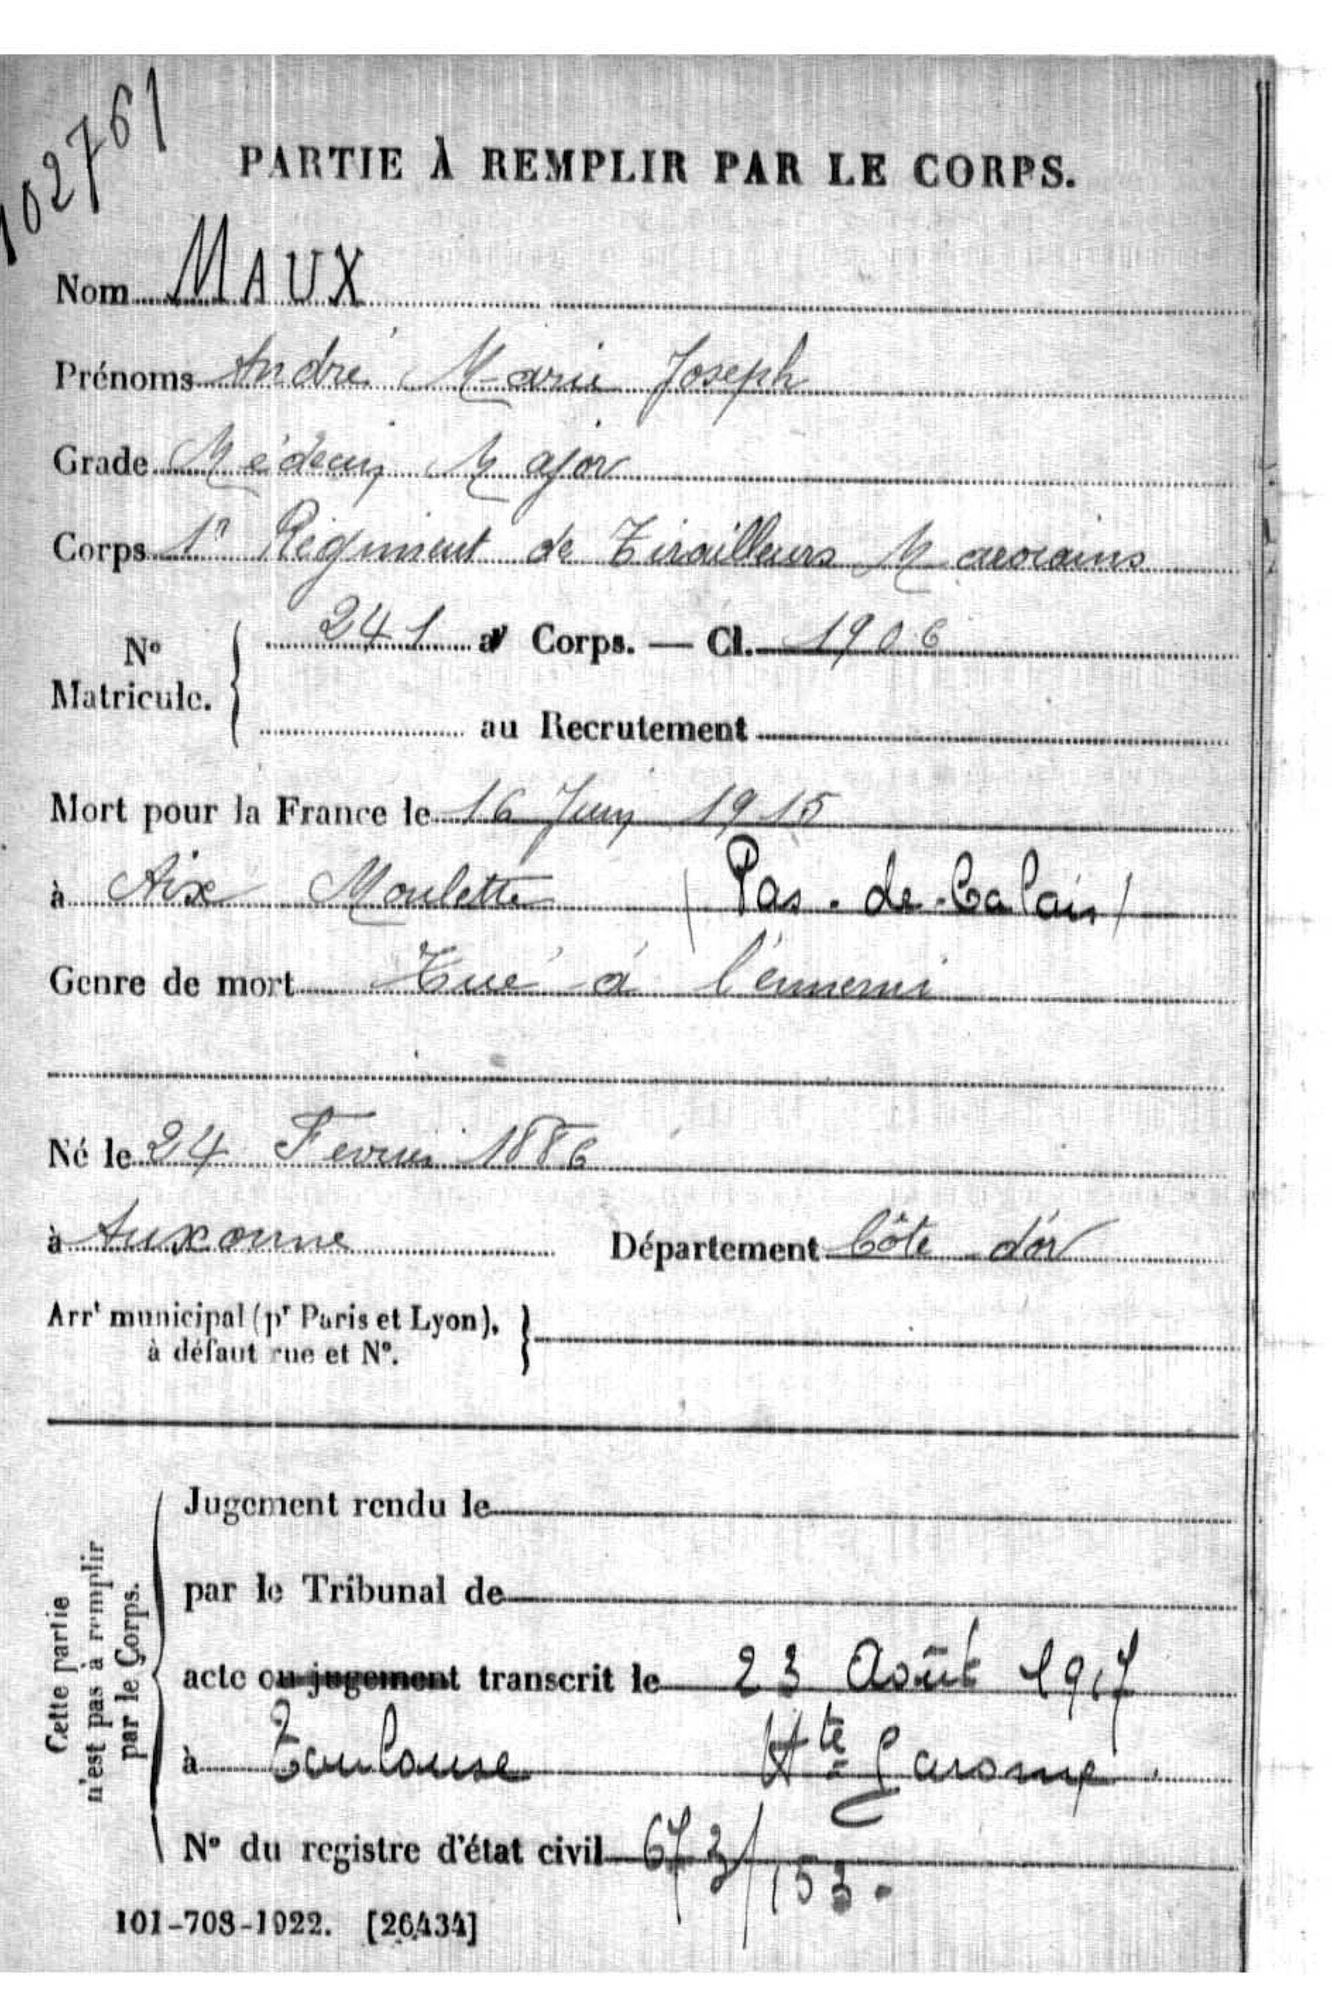 102761
PARTIE À REMPLIR PAR LE CORPS.
Nom MAUX
Prénoms André Marie Joseph
Grade Médecin Major
Corps 1r Régiment de Tirailleurs Marocains
No Matricule. { 241 au Corps. — Cl. 1906
au Recrutement
Mort pour la France le 16 Juin 1915
à Aix Moulette (Pas-de-Calais)
Genre de mort Tué à l'ennemi
Né le 24 Fevrier 1886
à Auxonne Département Côte d'or
Arrt municipal (pr Paris et Lyon), }
à défaut rue et No.
Cette partie
n'est pas à remplir
par le Corps.
Jugement rendu le
par le Tribunal de
acte ou jugement transcrit le 23 Août 1917
à Toulouse Hte Garonne.
No du registre d'état civil 673/153.
101-708-1922. [26434]